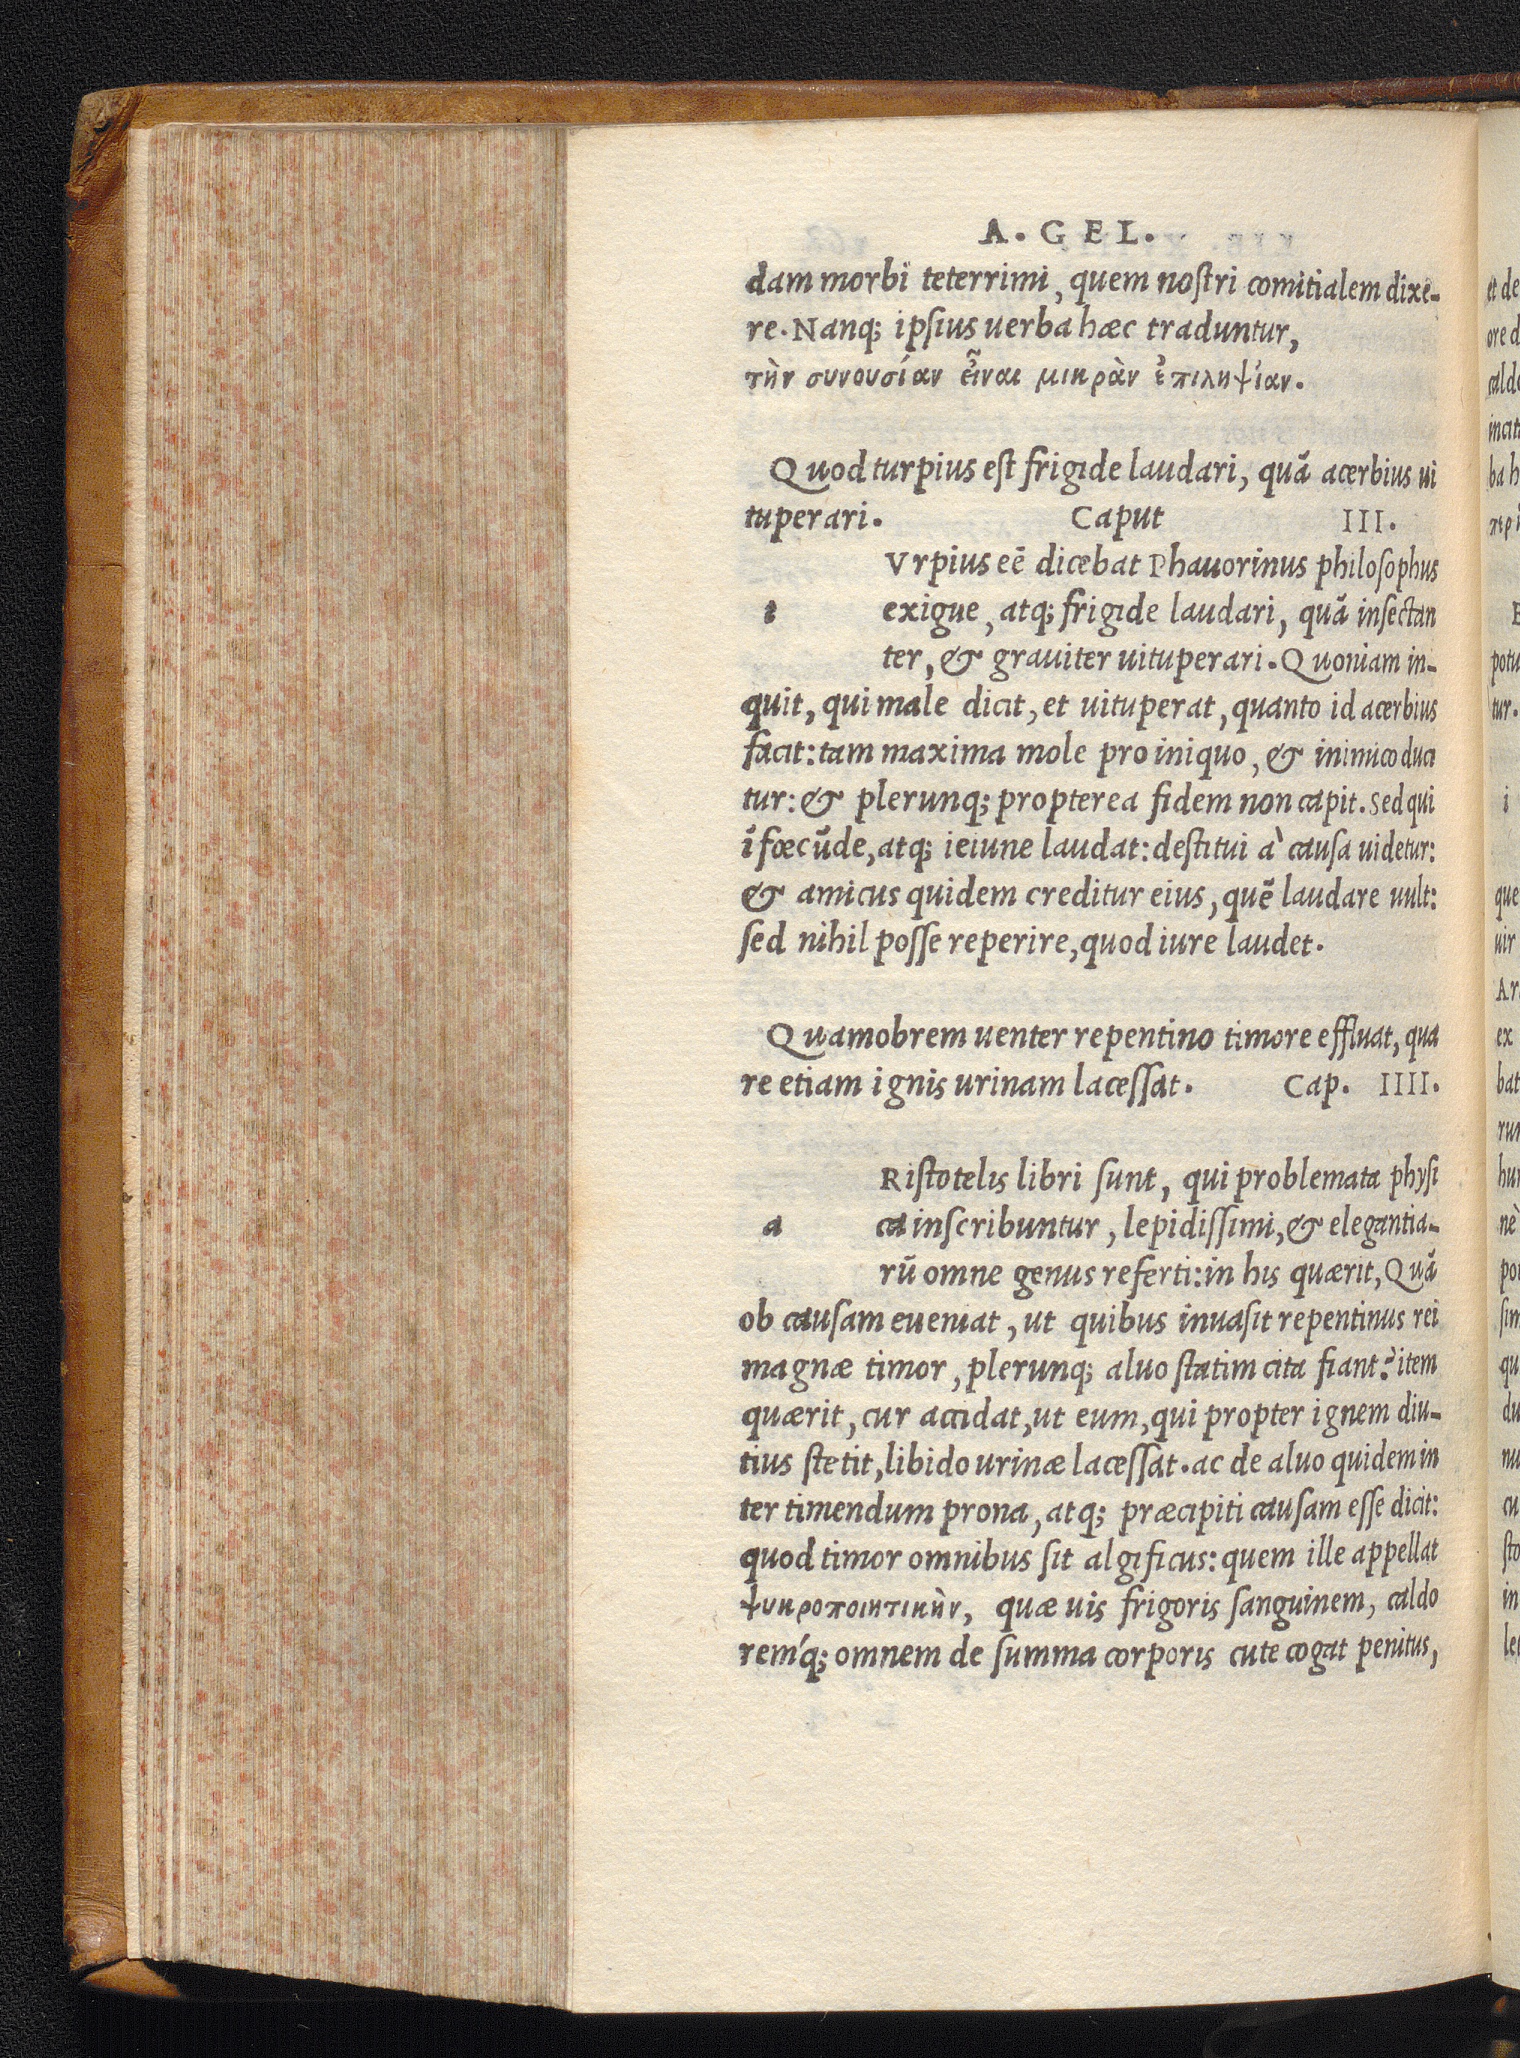 A. GEL.
dam morbi teterrimi, quem nostri comitialem dixe-
re. Nanq; ipsius uerba hæc traduntur,
τὴν συνουσίαν εἶναι μικρὰν ἐπιληψίαν.
Quod turpius est frigide laudari, quã acerbius ui
tuperari. Caput III.
Vrpius eẽ dicebat Phauorinus philosophus
t exigue, atq; frigide laudari, quã insectan
ter, & grauiter uituperari. Quoniam in-
quit, qui male dicit, et uituperat, quanto id acerbius
facit: tam maxima mole pro iniquo, & inimico duci
tur: & plerunq; propterea fidem non capit. Sed qui
ĩfœcũde, atq; ieiune laudat: destitui à causa uidetur:
& amicus quidem creditur eius, quẽ laudare uult:
sed nihil posse reperire, quod iure laudet.
Quamobrem uenter repentino timore effluat, qua
re etiam ignis urinam lacessat. Cap. IIII.
Ristotelis libri sunt, qui problemata physi
a ca inscribuntur, lepidissimi, & elegantia-
rũ omne genus referti: in his quærit, Quã
ob causam eueniat, ut quibus inuasit repentinus rei
magnæ timor, plerunq; aluo statim cita fiant? item
quærit, cur accidat, ut eum, qui propter ignem diu-
tius stetit, libido urinæ lacessat. ac de aluo quidem in
ter timendum prona, atq; præcipiti causam esse dicit:
quod timor omnibus sit algificus: quem ille appellat
ψυκροποιητικὴν, quæ uis frigoris sanguinem, caldo
remq́; omnem de summa corporis cute cogat penitus,